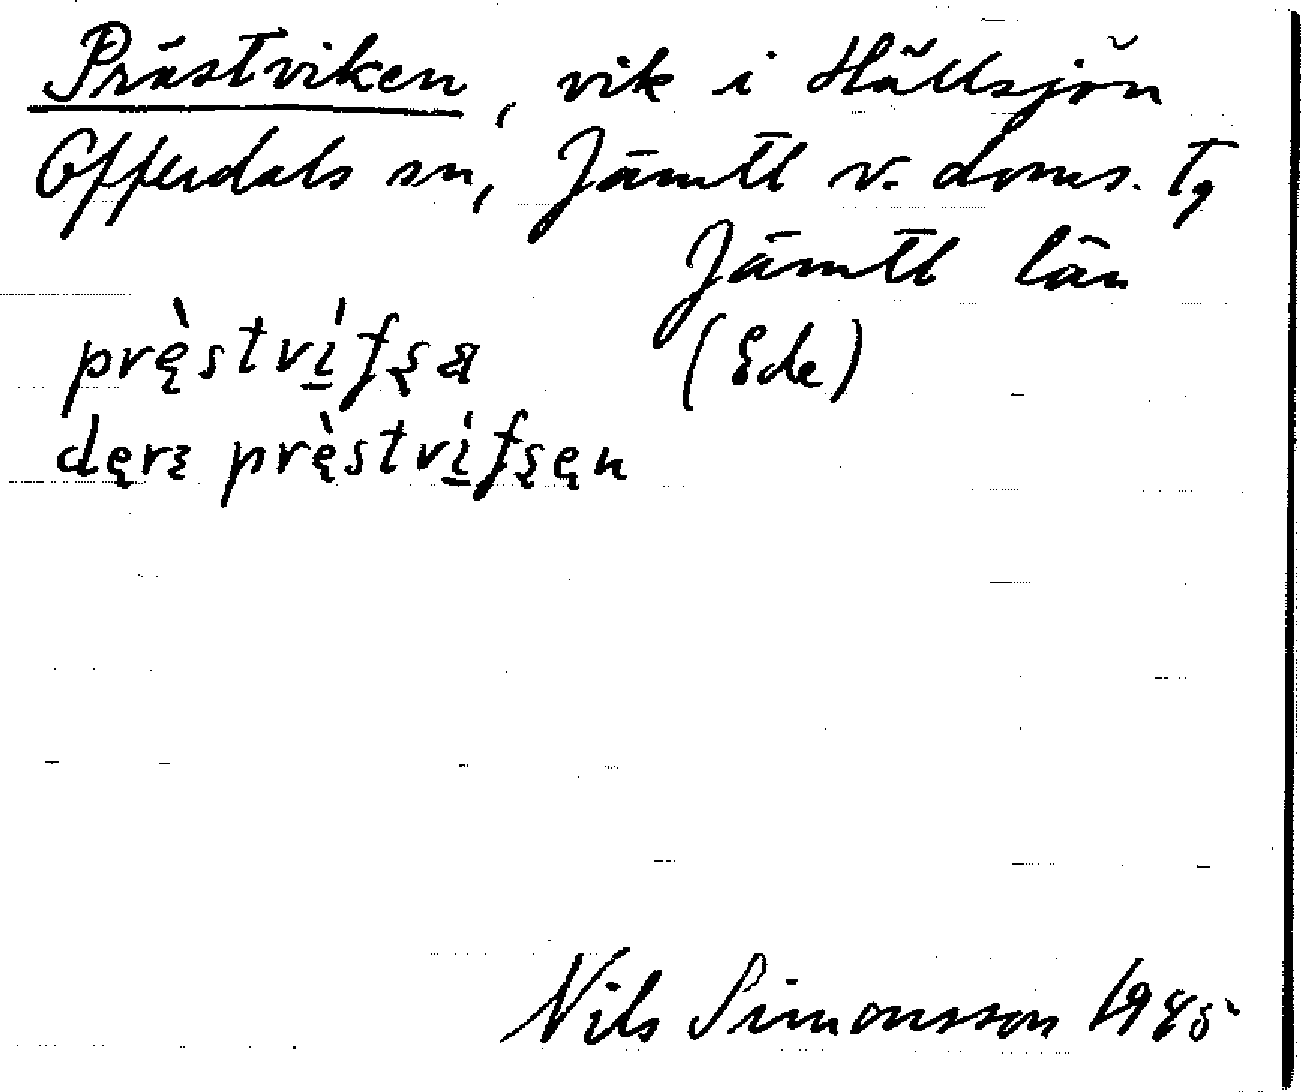 Prästviken, vik i Hällsjön
Offerdals sn, Jämtl v. doms. Tg
Jämtl län
prę̀ství̠fʂa (Ede)
dęrɛ prę̀ství̠fʂęn
Nils Simonsson 1945